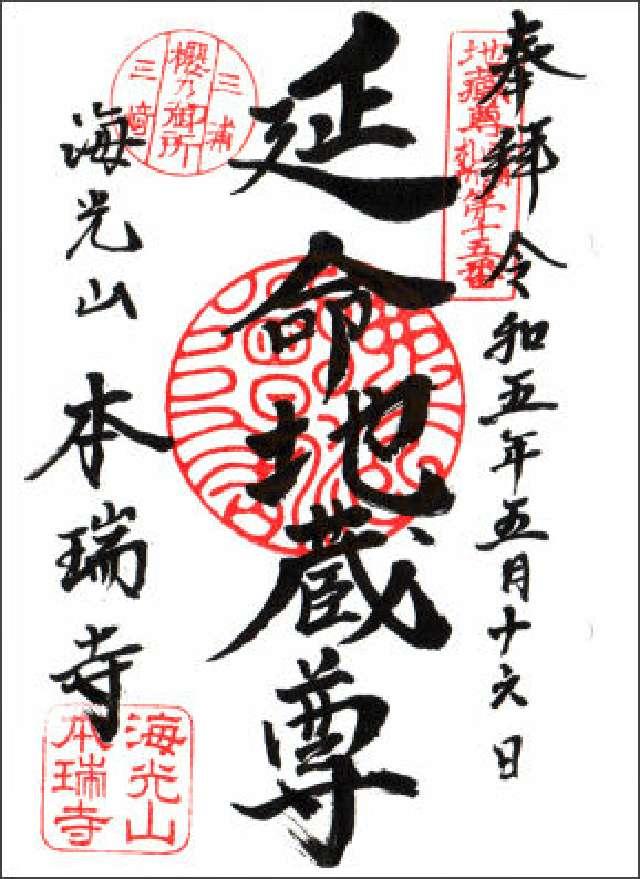 奉拝 令和五年五月十六日
地蔵尊
札所第十五番
延命地蔵尊
三浦
櫻乃御所
三崎
海光山 本瑞寺
海光山
本瑞寺